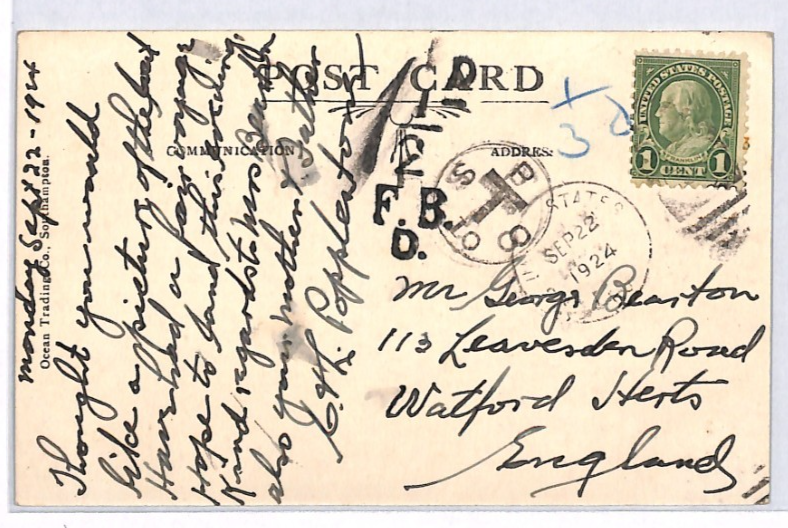 POST CARD
COMMUNICATION
ADDRESS
Ocean Trading Co., Southampton.
Monday Sept 22-1924
Thought you would
like a picture of the boat
Have had a fair voyage
Hope to land this evening
Kind regards to Mrs Bearton
also your mother & Father
C. H. Poppleton
1D
F.B.
D.
T
+
3d
UNITED STATES POSTAGE
FRANKLIN
1 CENT 1
STATES
SEP 22
1924
Mr George Bearton
113 Leavesden Road
Watford Herts
England
3